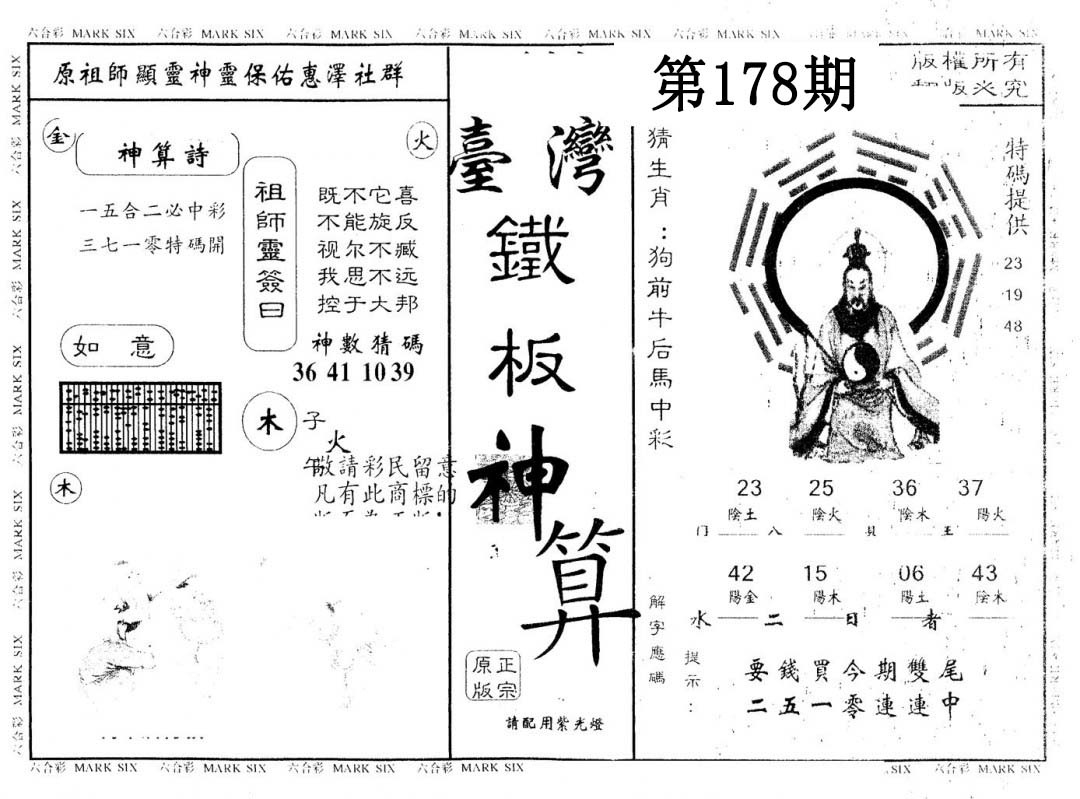 六合彩 MARK SIX 六合彩 MARK SIX 六合彩 MARK SIX 六合彩 MARK SIX 六合彩 MARK SIX 六合彩 MARK SIX 六合彩 MARK SIX
原祖師顯靈神靈保佑惠澤社群
金
火
神算詩
一五合二必中彩
三七一零特碼開
祖師靈簽曰
既不它喜
不能旋反
视尔不臧
我思不远
控于大邦
神數猜碼
36 41 10 39
如 意
木
子
火
午
敬請彩民留意
凡有此商標的
木
臺灣
鐵
板
神
算
正宗
原版
請配用紫光燈
第178期
版權所有
猜生肖：狗前牛后馬中彩
特碼提供
23
19
48
23 25 36 37
陰土 陰火 陰木 陽火
門 八 貝 王
42 15 06 43
陽金 陽木 陽土 陰木
水 二 日 者
解字應碼
提示：
要錢買今期雙尾
二五一零連連中
六合彩 MARK SIX 六合彩 MARK SIX 六合彩 MARK SIX 六合彩 MARK SIX
SIX 六合彩 MARK SIX